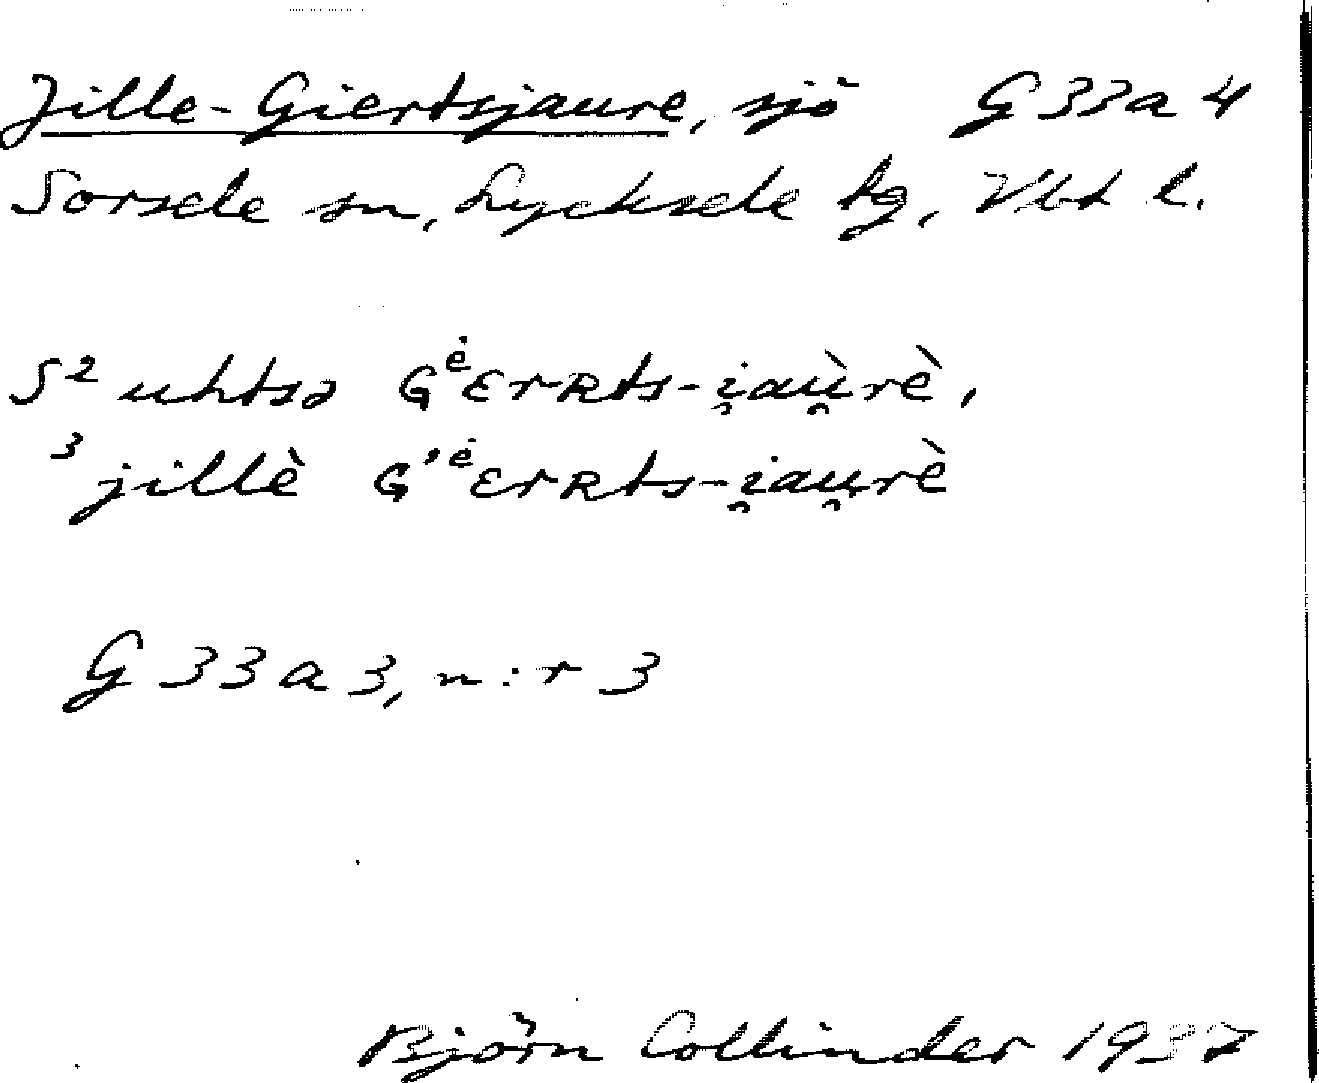 Jille-Giertsjaure, sjö G 33 a 4
Sorsele sn, Lycksele lg, Vbt l.
S² uhtsə Gᵉ̇ɛrrʀts-i̯aù̯rè,
³ jillè G'ᵉ̇ɛrrʀts-i̯au̯rè
G 33 a 3, n:r 3
Björn Collinder 1937